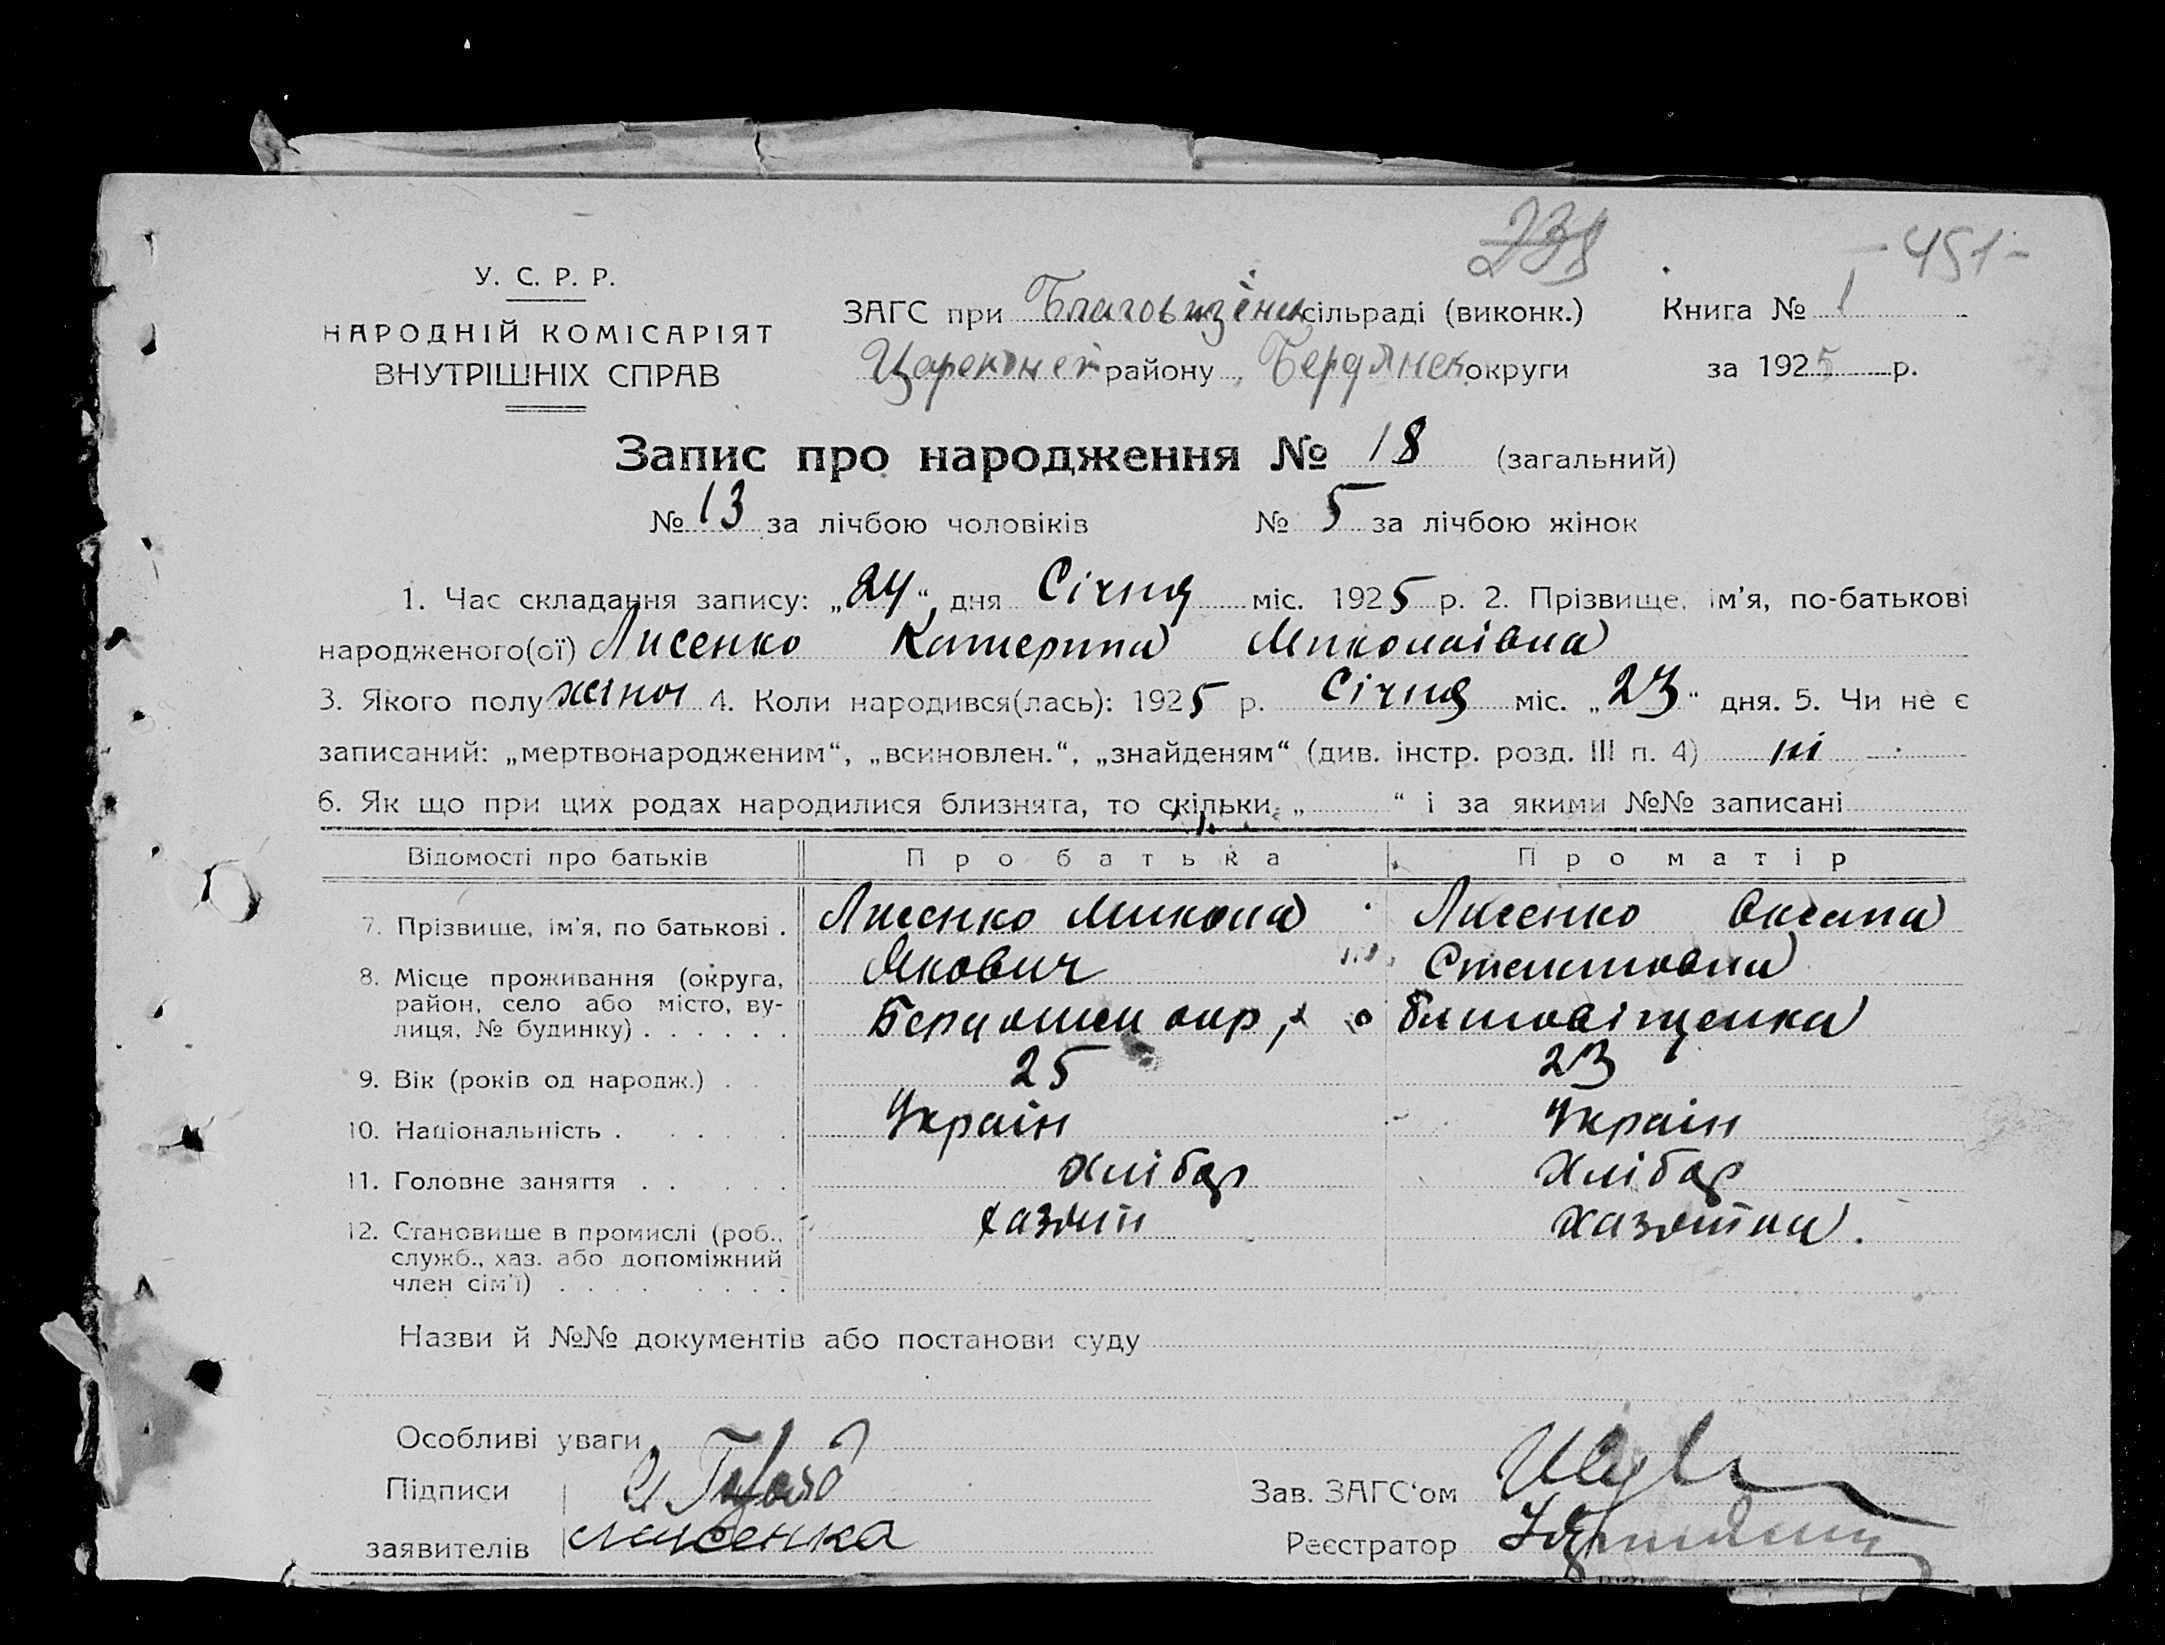 238
- 451 -
У. С. Р. Р.
НАРОДНІЙ КОМІСАРІЯТ
ВНУТРІШНІХ СПРАВ
ЗАГС при Благовіщенск сільраді (виконк.) Книга № 1
Цареконст району Бердянск округи за 1925 р.
Запис про народження № 18 (загальний)
№ 13 за лічбою чоловіків № 5 за лічбою жінок
1. Час складання запису: „24“ дня Січня міс. 1925 р. 2. Прізвище, ім'я, по-батькові
народженого(ої) Лисенко Катерина Миколаівна
3. Якого полу жіноч 4. Коли народився(лась): 1925 р. Січня міс. „23“ дня. 5. Чи не є
записаний: „мертвонародженим“, „всиновлен.“, „знайденям“ (див. інстр. розд. III п. 4) ні
6. Як що при цих родах народилися близнята, то скільки „ “ і за якими №№ записані
Відомості про батьків Про батька Про матір
7. Прізвище, ім'я, по батькові . Лисенко Микола Лисенко Оксана
Якович
8. Місце проживання (округа, район, село або місто, вулиця, № будинку) . . . . . .
окр, Благовіщенка
9. Вік (років од народж.) . . 25 23
10. Національність . . . . . . Украін Украін
11. Головне заняття . . . . . Хлібор Хлібор
12. Становище в промислі (роб., хазяін хазяйка.
служб., хаз. або допоміжний
член сім'ї) . . . . . . . .
Назви й №№ документів або постанови суду
Особливі уваги
Підписи Зав. ЗАГС'ом
заявителів Лисенка Реєстратор